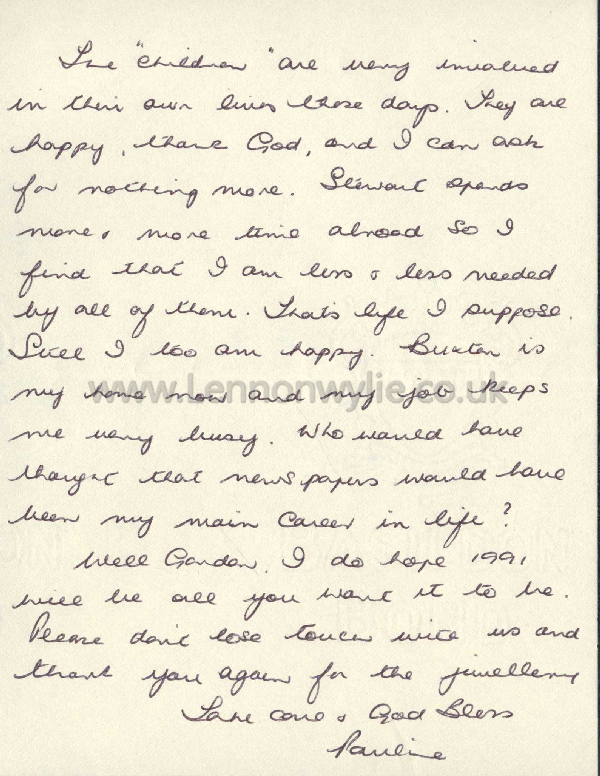 The "children" are very involved
in their own lives these days. They are
happy, thank God, and I can ask
for nothing more. Stewart spends
more & more time abroad so I
find that I am less & less needed
by all of them. That's life I suppose.
Still I too am happy. Buxton is
www.Lennonwylie.co.uk
my home now and my job keeps
me very busy. Who would have
thought that newspapers would have
been my main career in life?
Well Gordon, I do hope 1991
will be all you want it to be.
Please don't lose touch with us and
thank you again for the jewellery
Take care & God Bless
Pauline